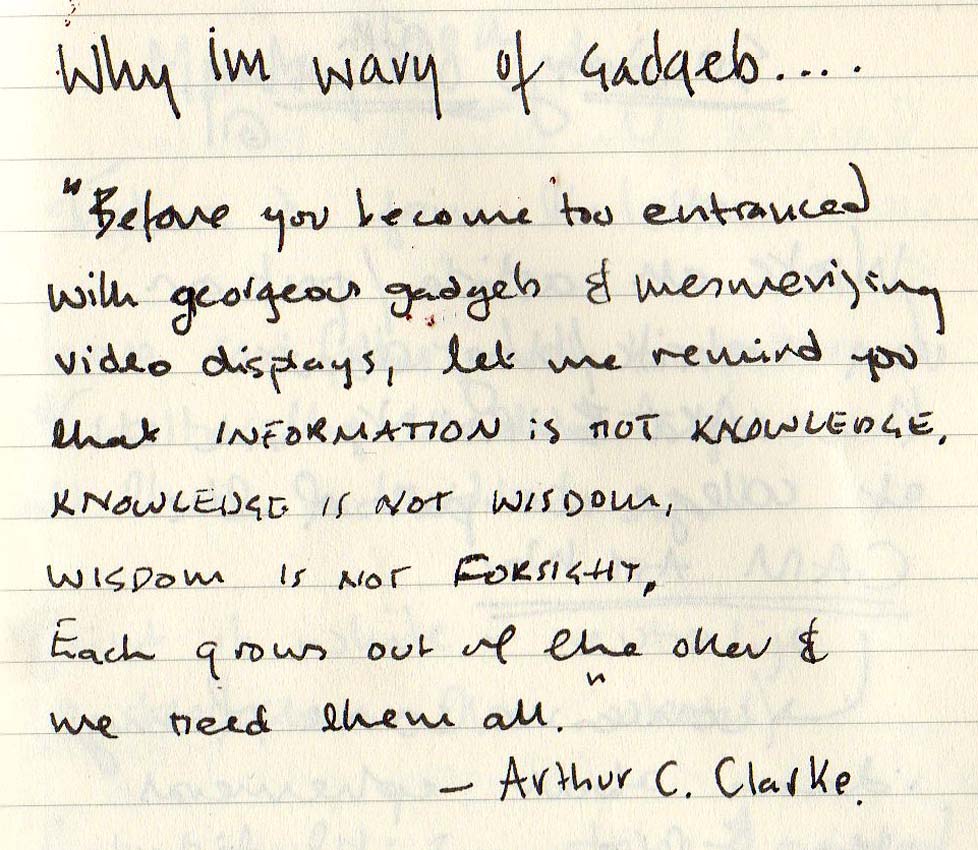 Why im wary of Gadgets....
"Before you become too entranced
with georgeous gadgets & mesmerising
video displays, let me remind you
that INFORMATION is NOT KNOWLEDGE,
KNOWLEDGE IS NOT WISDOM,
WISDOM IS NOT FORSIGHT,
Each grows out of the other &
we need them all."
– Arthur C. Clarke.